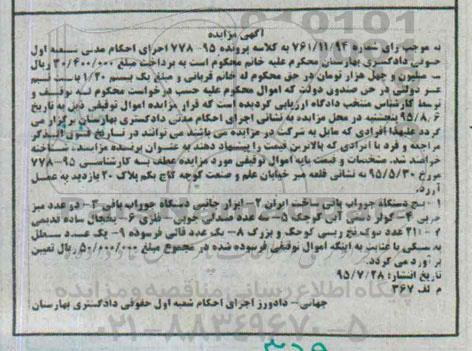 آگهی مزایده
به موجب رای شماره ۷۶۱/۱۱/۹۴ به کلاسه پرونده ۹۵-۷۷۸ اجرای احکام مدنی شعبه اول
حقوقی دادگستری بهارستان محکوم علیه خانم محکوم است به پرداخت مبلغ ۳۰/۴۰۰/۰۰۰ ریال
میلیون و چهل هزار تومان در حق محکوم له خانم قربانی و مبلغ یک بیستم ۱/۲۰ بابت نیم
عشر دولتی در حق صندوق دولت که اموال محکوم علیه حسب درخواست محکوم له توقیف و
توسط کارشناس منتخب دادگاه ارزیابی گردیده است که قرار مزایده اموال توقیفی ذیل به تاریخ
۹۵/۸/۶ پنجشنبه در محل مزایده به نشانی اجرای احکام مدنی دادگستری بهارستان برگزار می
گردد علیهذا افرادی که مایل به شرکت در مزایده می باشند می توانند در تاریخ فوق الذکر
مراجعه و فرد یا افرادی که بالاترین قیمت را پیشنهاد دهند به عنوان برنده مزایده شناخته
خواهند شد. مشخصات و قیمت پایه اموال توقیفی مورد مزایده عطف به کارشناسی ۹۵-۷۷۸
مورخ ۹۵/۵/۳۰ به نشانی قلعه میر خیابان علم و صنعت کوچه کاج یکم پلاک ۲۰ بازدید به عمل
آورد.
۱- پنج دستگاه جوراب بافی ساخت ایران ۲- ابزار جانبی دستگاه جوراب بافی ۳- دو عدد میز
چوبی ۴- کولر دستی آبی کوچک ۵- سه عدد صندلی چوبی - فلزی ۶- یخچال ساده قدیمی
۷- ۲۱۱ عدد دوک نخ ریسی کوچک و بزرگ ۸- یک عدد قالی فرسوده ۹- یک عدد سطل
پلاستیکی با عنایت به اینکه اموال توقیفی فرسوده شده در مجموع مبلغ ۵۰/۰۰۰/۰۰۰ ریال تعیین
برآورد می گردد.
تاریخ انتشار: ۹۵/۷/۲۸
م الف ۳۶۷
جهانی- دادورز اجرای احکام شعبه اول حقوقی دادگستری بهارستان
پایگاه اطلاع رسانی مناقصه و مزایده
۰۲۱-۸۸۳۴۹۶۷۰-۵